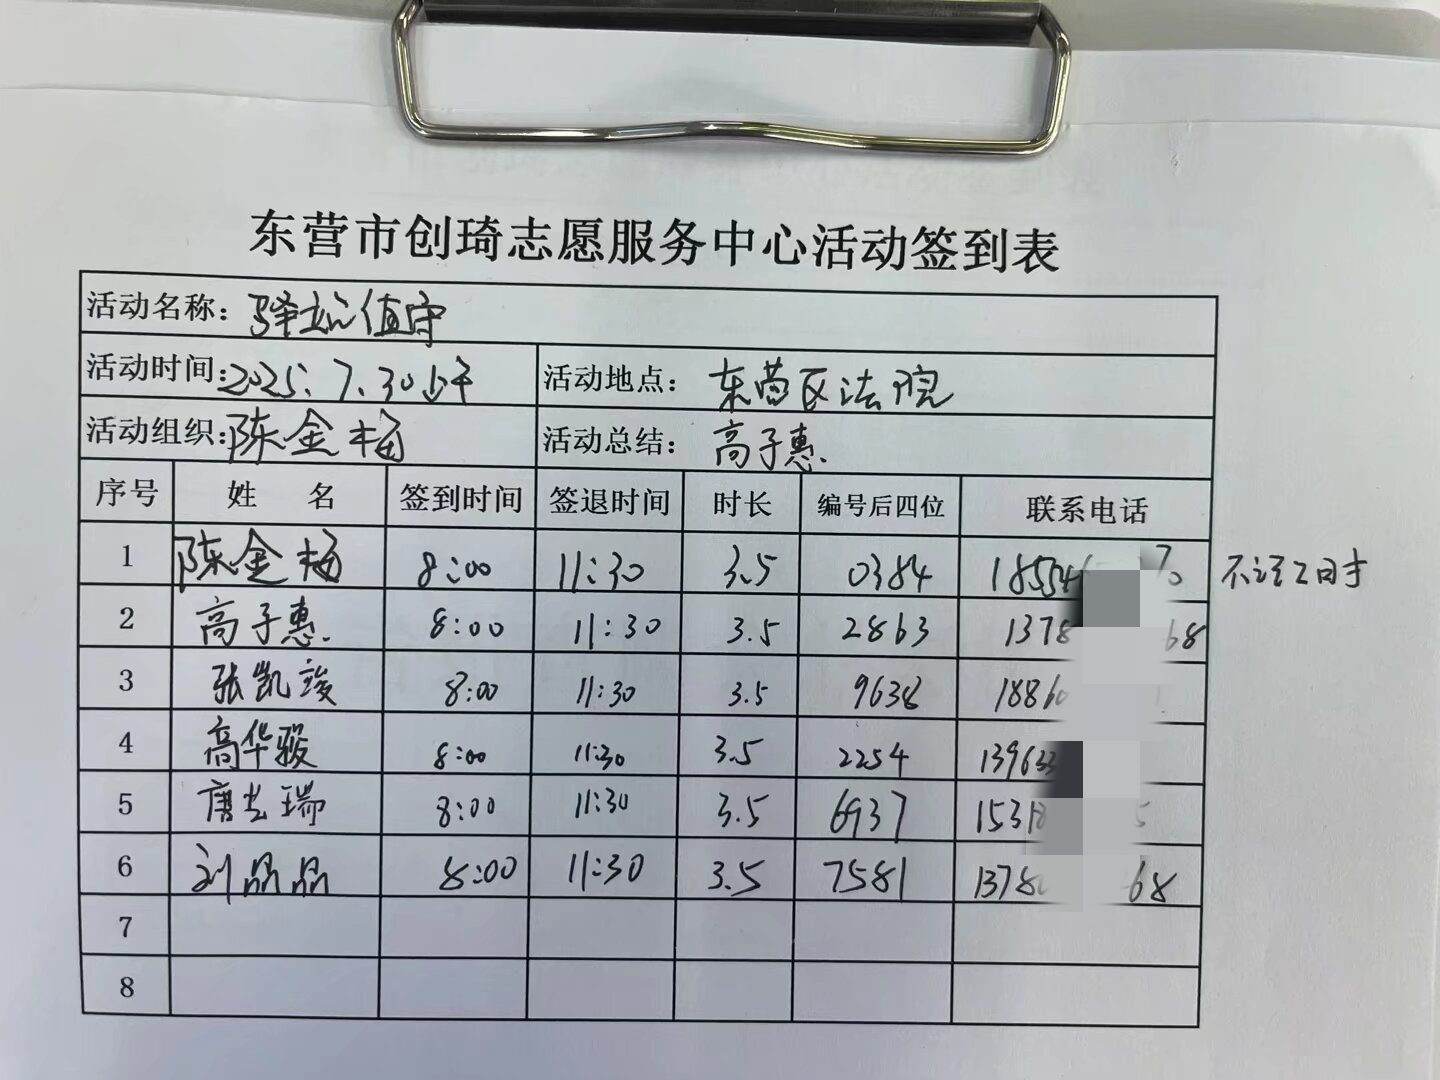 东营市创琦志愿服务中心活动签到表
活动名称：驿站值守
活动时间：2025.7.30上午 活动地点：东营区法院
活动组织：陈金梅 活动总结：高子惠.
序号 姓 名 签到时间 签退时间 时长 编号后四位 联系电话
1 陈金梅 8:00 11:30 3.5 0384 18554 70 不记工时
2 高子惠. 8:00 11:30 3.5 2863 1378 68
3 张凯竣 8:00 11:30 3.5 9638 18860
4 高华骏 8:00 11:30 3.5 2254 13963
5 唐 瑞 8:00 11:30 3.5 6937 1531 5
6 刘晶晶 8:00 11:30 3.5 7581 1378 68
7
8